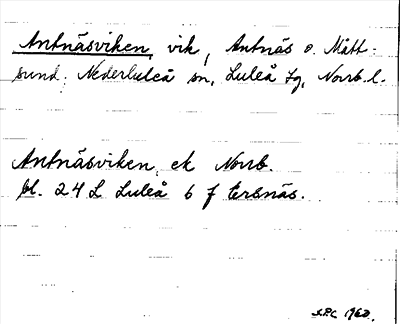 Antnäsviken, vik, Antnäs o. Mått-
sund, Nederluleå sn, Luleå tg, Norrb. l.
Antnäsviken, ek Norrb.
bl. 24 L Luleå 6 f Ersnäs.
1960.